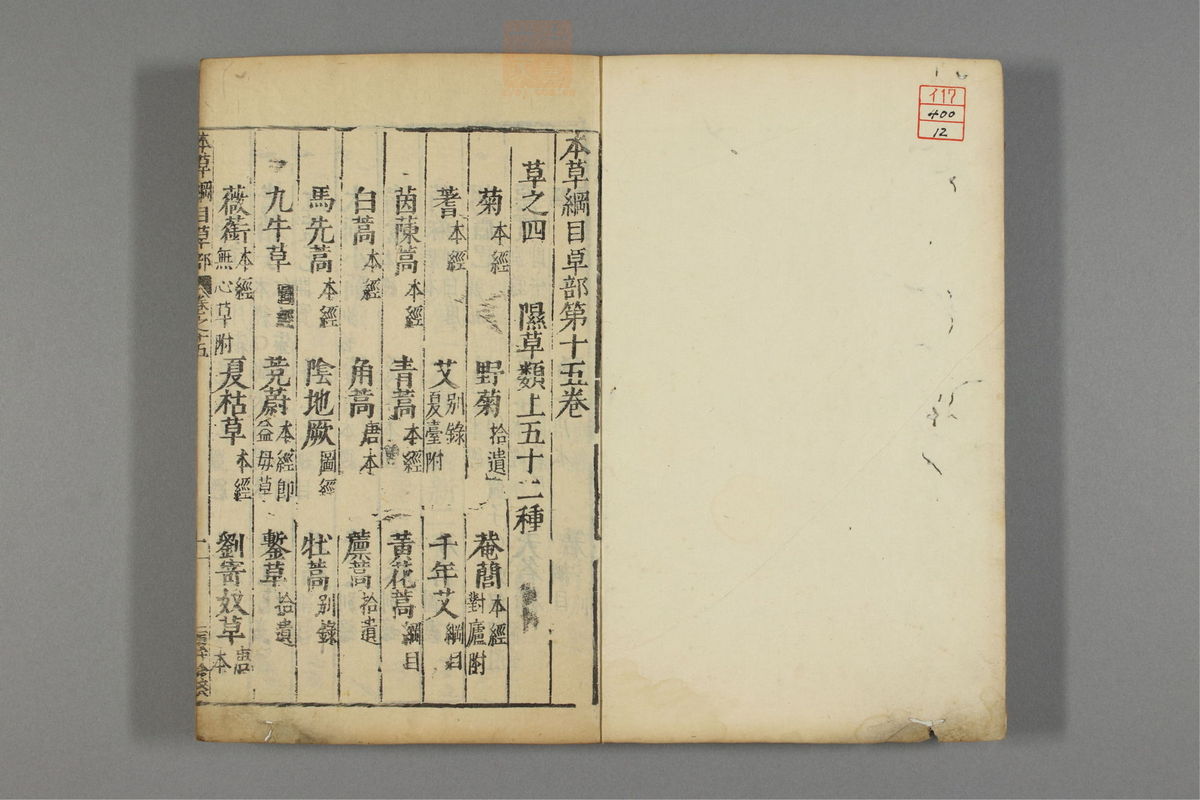 イ17
400
12
本草綱目草部第十五卷
草之四 隰草類上五十二種
菊本經 野菊拾遺 菴䕡本經對廬附
蓍本經 艾别錄夏臺附 千年艾綱目
茵蔯蒿本經 青蒿本經 黃花蒿綱目
白蒿本經 角蒿唐本 藘蒿拾遺
馬先蒿本經 陰地厥圖經 牡蒿别錄
九牛草 茺蔚本經即益母草 鏨草拾遺
薇蘅本經無心草附 夏枯草本經 劉寄奴草唐本
本草綱目草部 卷之十五